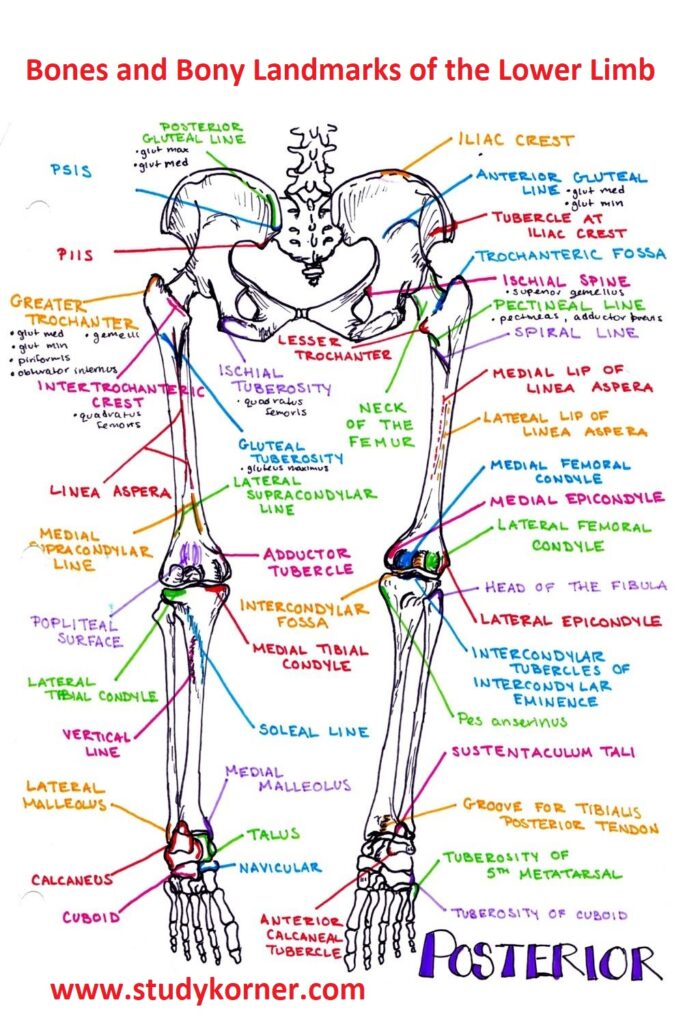 Bones and Bony Landmarks of the Lower Limb
POSTERIOR
GLUTEAL LINE
• glut max
• glut med
PSIS
PIIS
GREATER
TROCHANTER
• glut med
• gemelli
• glut min
• piriformis
• obturator internus
INTERTROCHANTERIC
CREST
• quadratus
femoris
ISCHIAL
TUBEROSITY
• quadratus
femoris
GLUTEAL
TUBEROSITY
• gluteus maximus
LINEA ASPERA
LATERAL
SUPRACONDYLAR
LINE
MEDIAL
SUPRACONDYLAR
LINE
ADDUCTOR
TUBERCLE
POPLITEAL
SURFACE
INTERCONDYLAR
FOSSA
MEDIAL TIBIAL
CONDYLE
LATERAL
TIBIAL CONDYLE
VERTICAL
LINE
SOLEAL LINE
LATERAL
MALLEOLUS
MEDIAL
MALLEOLUS
TALUS
NAVICULAR
CALCANEUS
CUBOID
ANTERIOR
CALCANEAL
TUBERCLE
ILIAC CREST
ANTERIOR GLUTEAL
LINE • glut med
• glut min
TUBERCLE AT
ILIAC CREST
TROCHANTERIC FOSSA
ISCHIAL SPINE
• superior gemellus
PECTINEAL LINE
• pectineas, adductor brevis
LESSER
TROCHANTER
SPIRAL LINE
MEDIAL LIP OF
LINEA ASPERA
NECK
OF THE
FEMUR
LATERAL LIP OF
LINEA ASPERA
MEDIAL FEMORAL
CONDYLE
MEDIAL EPICONDYLE
LATERAL FEMORAL
CONDYLE
HEAD OF THE FIBULA
LATERAL EPICONDYLE
INTERCONDYLAR
TUBERCLES OF
INTERCONDYLAR
EMINENCE
Pes anserinus
SUSTENTACULUM TALI
GROOVE FOR TIBIALIS
POSTERIOR TENDON
TUBEROSITY OF
5TH METATARSAL
TUBEROSITY OF CUBOID
POSTERIOR
www.studykorner.com